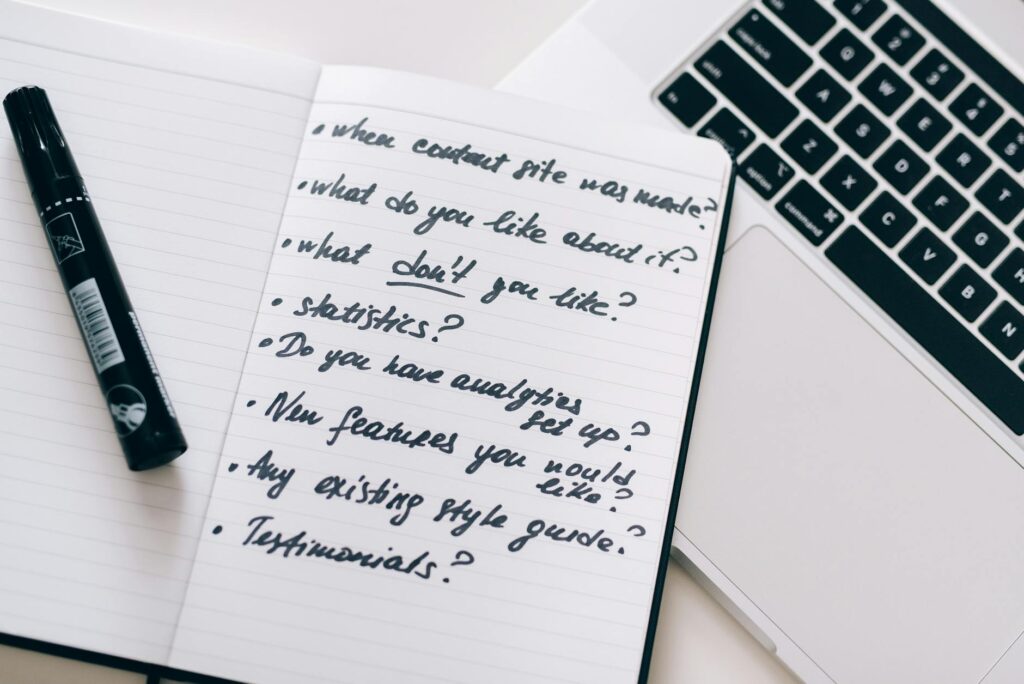 • when content site was made?
• what do you like about it?
• what don't you like?
• statistics?
• Do you have analytics
set up?
• New features you would
like?
• Any existing style guide?
• Testimonials?
2 3 4 5
Q W E R T
A S D F G H
Z X C V B N
option command ⌘